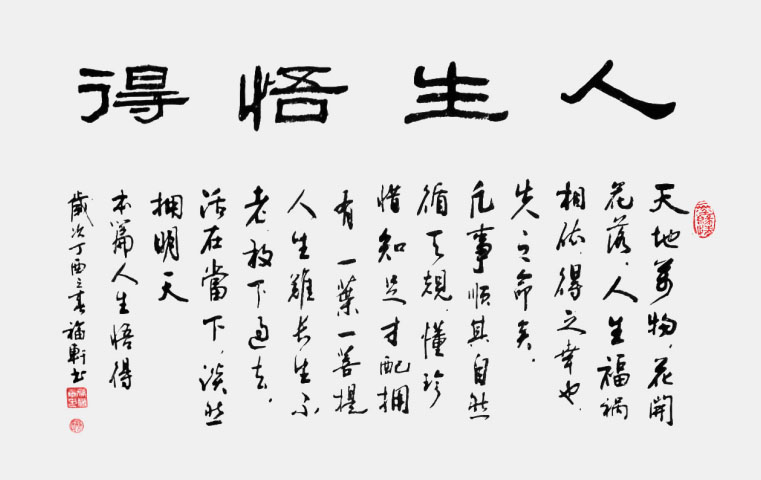 人生悟得
天地萬物，花開
花落，人生福禍
相依，得之幸也，
失之命矣。
凡事順其自然
循天規，懂珍
惜知足才配擁
有一葉一菩提
人生難長生不
老，放下過去，
活在當下，淡然
擁明天
本篇人生悟得
歲次丁酉春福軒書